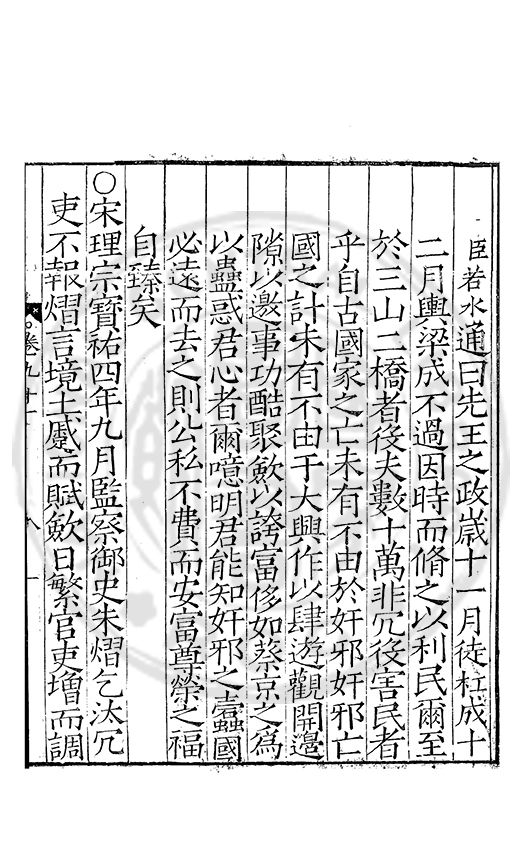 臣若水通曰先王之政歲十一月徒杠成十
二月輿梁成不過因時而脩之以利民爾至
於三山二橋者役夫數十萬非冗役害民者
乎自古國家之亡未有不由於奸邪奸邪亡
國之計未有不由于大興作以肆遊觀開邊
隙以邀事功酷聚歛以誇富侈如蔡京之為
以蠱惑君心者爾噫明君能知奸邪之蠹國
必遠而去之則公私不費而安富尊榮之福
自臻矣
○宋理宗寶祐四年九月監察御史朱熠乞汰冗
吏不報熠言境土蹙而賦歛日繁官吏増而調
卷九十一
八